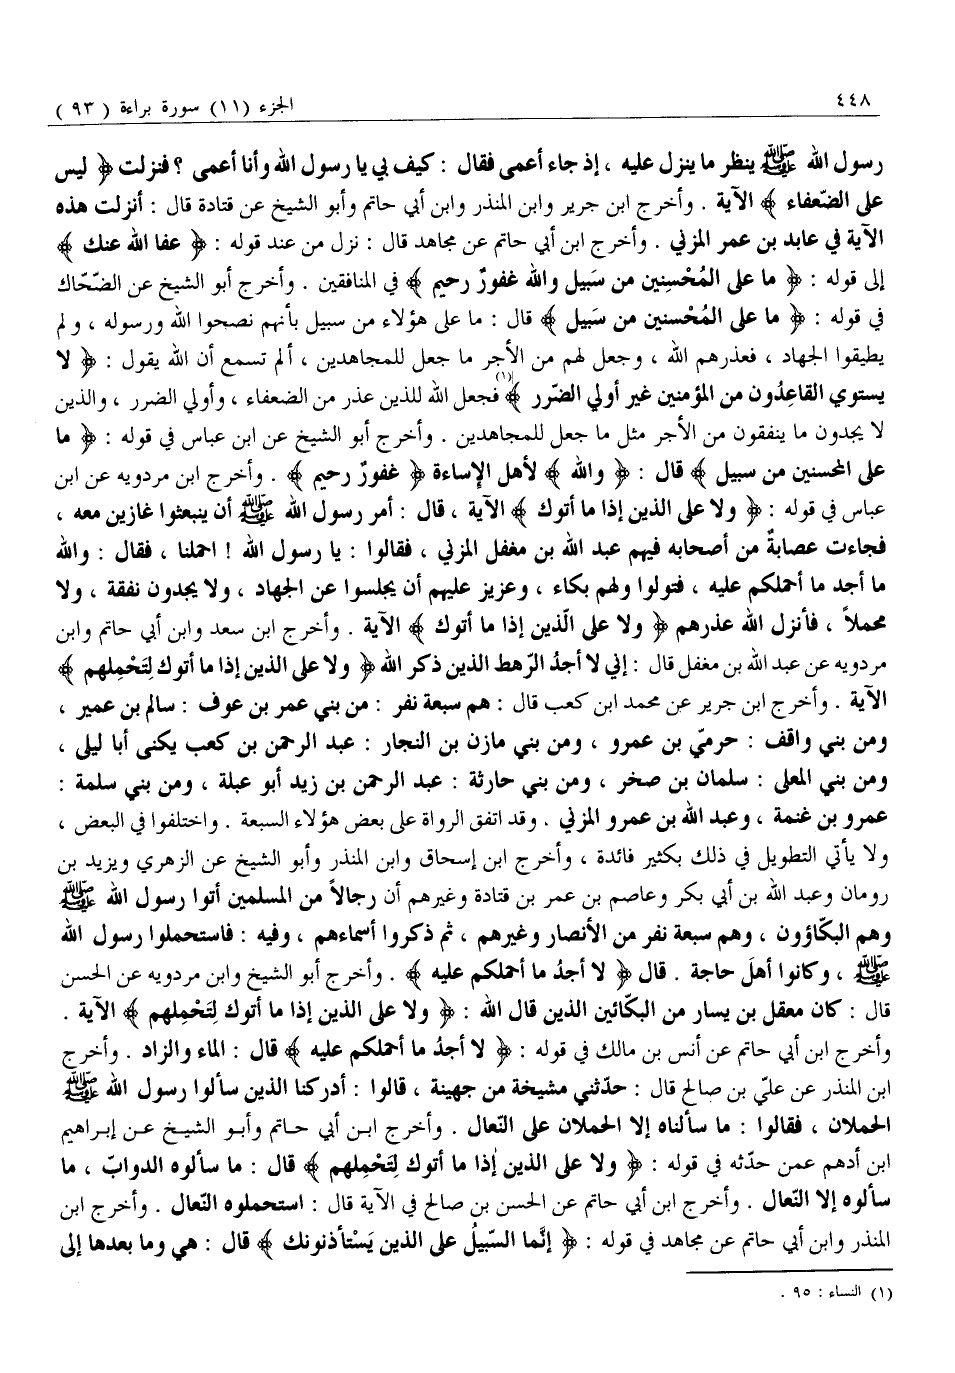 ٤٤٨
الجزء (١١) سورة براءة ( ٩٣ )
رسول الله ﷺ ينظر ما ينزل عليه ، إذ جاء أعمى فقال : كيف بي يا رسول الله وأنا أعمى ؟ فنزلت ﴿ ليس
على الضّعفاء ﴾ الآية . وأخرج ابن جرير وابن المنذر وابن أبي حاتم وأبو الشيخ عن قتادة قال : أنزلت هذه
الآية في عابد بن عمر المزني . وأخرج ابن أبي حاتم عن مجاهد قال : نزل من عند قوله : ﴿ عفا الله عنك ﴾
إلى قوله : ﴿ ما على المُحْسِنين من سَبيل والله غفورٌ رحيم ﴾ في المنافقين . وأخرج أبو الشيخ عن الضّحّاك
في قوله : ﴿ ما على المُحْسنين من سَبيل ﴾ قال : ما على هؤلاء من سبيل بأنهم نصحوا الله ورسوله ، ولم
يطيقوا الجهاد ، فعذرهم الله ، وجعل لهم من الأجر ما جعل للمجاهدين ، ألم تسمع أن الله يقول : ﴿ لا
يستوي القاعِدُون من المؤمنين غير أولي الضّرر ﴾(١) فجعل الله للذين عذر من الضعفاء ، وأولي الضرر ، والذين
لا يجدون ما ينفقون من الأجر مثل ما جعل للمجاهدين . وأخرج أبو الشيخ عن ابن عباس في قوله : ﴿ ما
على المحسنين من سبيل ﴾ قال : ﴿ والله ﴾ لأهل الإساءة ﴿ غفورٌ رحيم ﴾ . وأخرج ابن مردويه عن ابن
عباس في قوله : ﴿ ولا على الذين إذا ما أتوك ﴾ الآية ، قال : أمر رسول الله ﷺ أن ينبعثوا غازين معه ،
فجاءت عصابةٌ من أصحابه فيهم عبد الله بن مغفل المزني ، فقالوا : يا رسول الله ! احملنا ، فقال : والله
ما أجد ما أحملكم عليه ، فتولوا ولهم بكاء ، وعزيز عليهم أن يجلسوا عن الجهاد ، ولا يجدون نفقة ، ولا
محملاً ، فأنزل الله عذرهم ﴿ ولا على الّذين إذا ما أتوك ﴾ الآية . وأخرج ابن سعد وابن أبي حاتم وابن
مردويه عن عبد الله بن مغفل قال : إني لا أجدُ الرّهط الذين ذكر الله ﴿ ولا على الذين إذا ما أتوك لِتَحْمِلهم ﴾
الآية . وأخرج ابن جرير عن محمد ابن كعب قال : هم سبعة نفر : من بني عمر بن عوف : سالم بن عمير ،
ومن بني واقف : حرميّ بن عمرو ، ومن بني مازن بن النجار : عبد الرحمن بن كعب يكنى أبا ليلى ،
ومن بني المعلى : سلمان بن صخر ، ومن بني حارثة : عبد الرحمن بن زيد أبو عبلة ، ومن بني سلمة :
عمرو بن غنمة ، وعبد الله بن عمرو المزني . وقد اتفق الرواة على بعض هؤلاء السبعة . واختلفوا في البعض ،
ولا يأتي التطويل في ذلك بكثير فائدة ، وأخرج ابن إسحاق وابن المنذر وأبو الشيخ عن الزهري ويزيد بن
رومان وعبد الله بن أبي بكر وعاصم بن عمر بن قتادة وغيرهم أن رجالاً من المسلمين أتوا رسول الله ﷺ
وهم البكّاؤون ، وهم سبعة نفر من الأنصار وغيرهم ، ثم ذكروا أسماءهم ، وفيه : فاستحملوا رسول الله
ﷺ ، وكانوا أهلَ حاجة . قال ﴿ لا أجدُ ما أحملكم عليه ﴾ . وأخرج أبو الشيخ وابن مردويه عن الحسن
قال : كان معقل بن يسار من البكائين الذين قال الله : ﴿ ولا على الذين إذا ما أتوك لِتَحْمِلهم ﴾ الآية .
وأخرج ابن أبي حاتم عن أنس بن مالك في قوله : ﴿ لا أجدُ ما أحملكم عليه ﴾ قال : الماء والزاد . وأخرج
ابن المنذر عن عليّ بن صالح قال : حدّثني مشيخة من جهينة ، قالوا : أدركنا الذين سألوا رسول الله ﷺ
الحملان ، فقالوا : ما سألناه إلا الحملان على النّعال . وأخرج ابن أبي حاتم وأبو الشيخ عن إبراهيم
ابن أدهم عمن حدّثه في قوله : ﴿ ولا على الذين إذا ما أتوك لِتَحْمِلهم ﴾ قال : ما سألوه الدوابّ ، ما
سألوه إلا النّعال . وأخرج ابن أبي حاتم عن الحسن بن صالح في الآية قال : استحملوه النّعال . وأخرج ابن
المنذر وابن أبي حاتم عن مجاهد في قوله : ﴿ إنَّما السّبيلُ على الذين يَسْتأذنونك ﴾ قال : هي وما بعدها إلى
(١) النساء : ٩٥ .